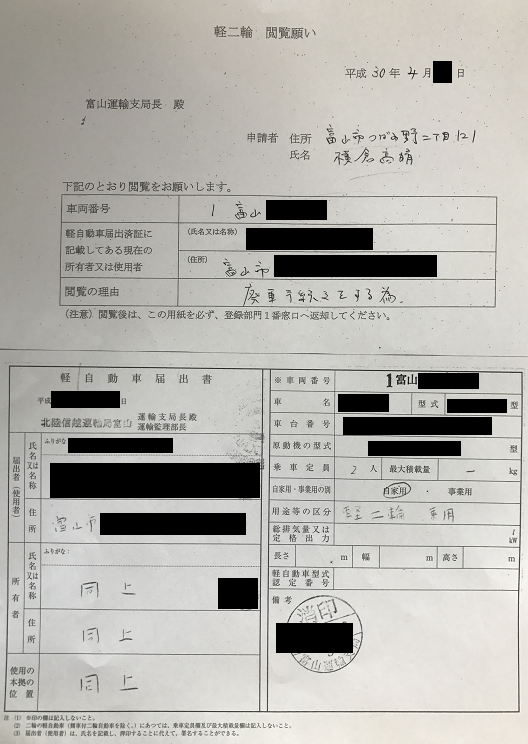 軽二輪 閲覧願い
平成 30年 4月 日
富山運輸支局長 殿
申請者 住所 富山市つばめ野二丁目121
氏名 横倉高晴
下記のとおり閲覧をお願いします。
車両番号 1 富山
軽自動車届出済証に記載してある現在の所有者又は使用者
(氏名又は名称)
(住所) 富山市
閲覧の理由 廃車手続きをする為。
(注意)閲覧後は、この用紙を必ず、登録部門1番窓口へ返却してください。
軽自動車届出書
平成 日
北陸信越運輸局富山 運輸支局長殿
運輸監理部長
届出者(使用者)
氏名又は名称 ふりがな
住所 富山市
所有者
氏名又は名称 ふりがな: 同上
住所 同上
使用の本拠の位置 同上
※車両番号 1富山
車名 型式 型
車台番号
原動機の型式 型
乗車定員 2人 最大積載量 — kg
自家用・事業用の別 自家用・事業用
用途等の区分 軽二輪 乗用
総排気量又は定格出力 l kW
長さ m 幅 m 高さ m
軽自動車型式認定番号
備考
消印
注 (1) ※印の欄は記入しないこと。
(2) 二輪の軽自動車(側車付二輪自動車を除く。)にあつては、乗車定員欄及び最大積載量欄は記入しないこと。
(3) 届出者(使用者)は、氏名を記載し、押印することに代えて、署名することができる。